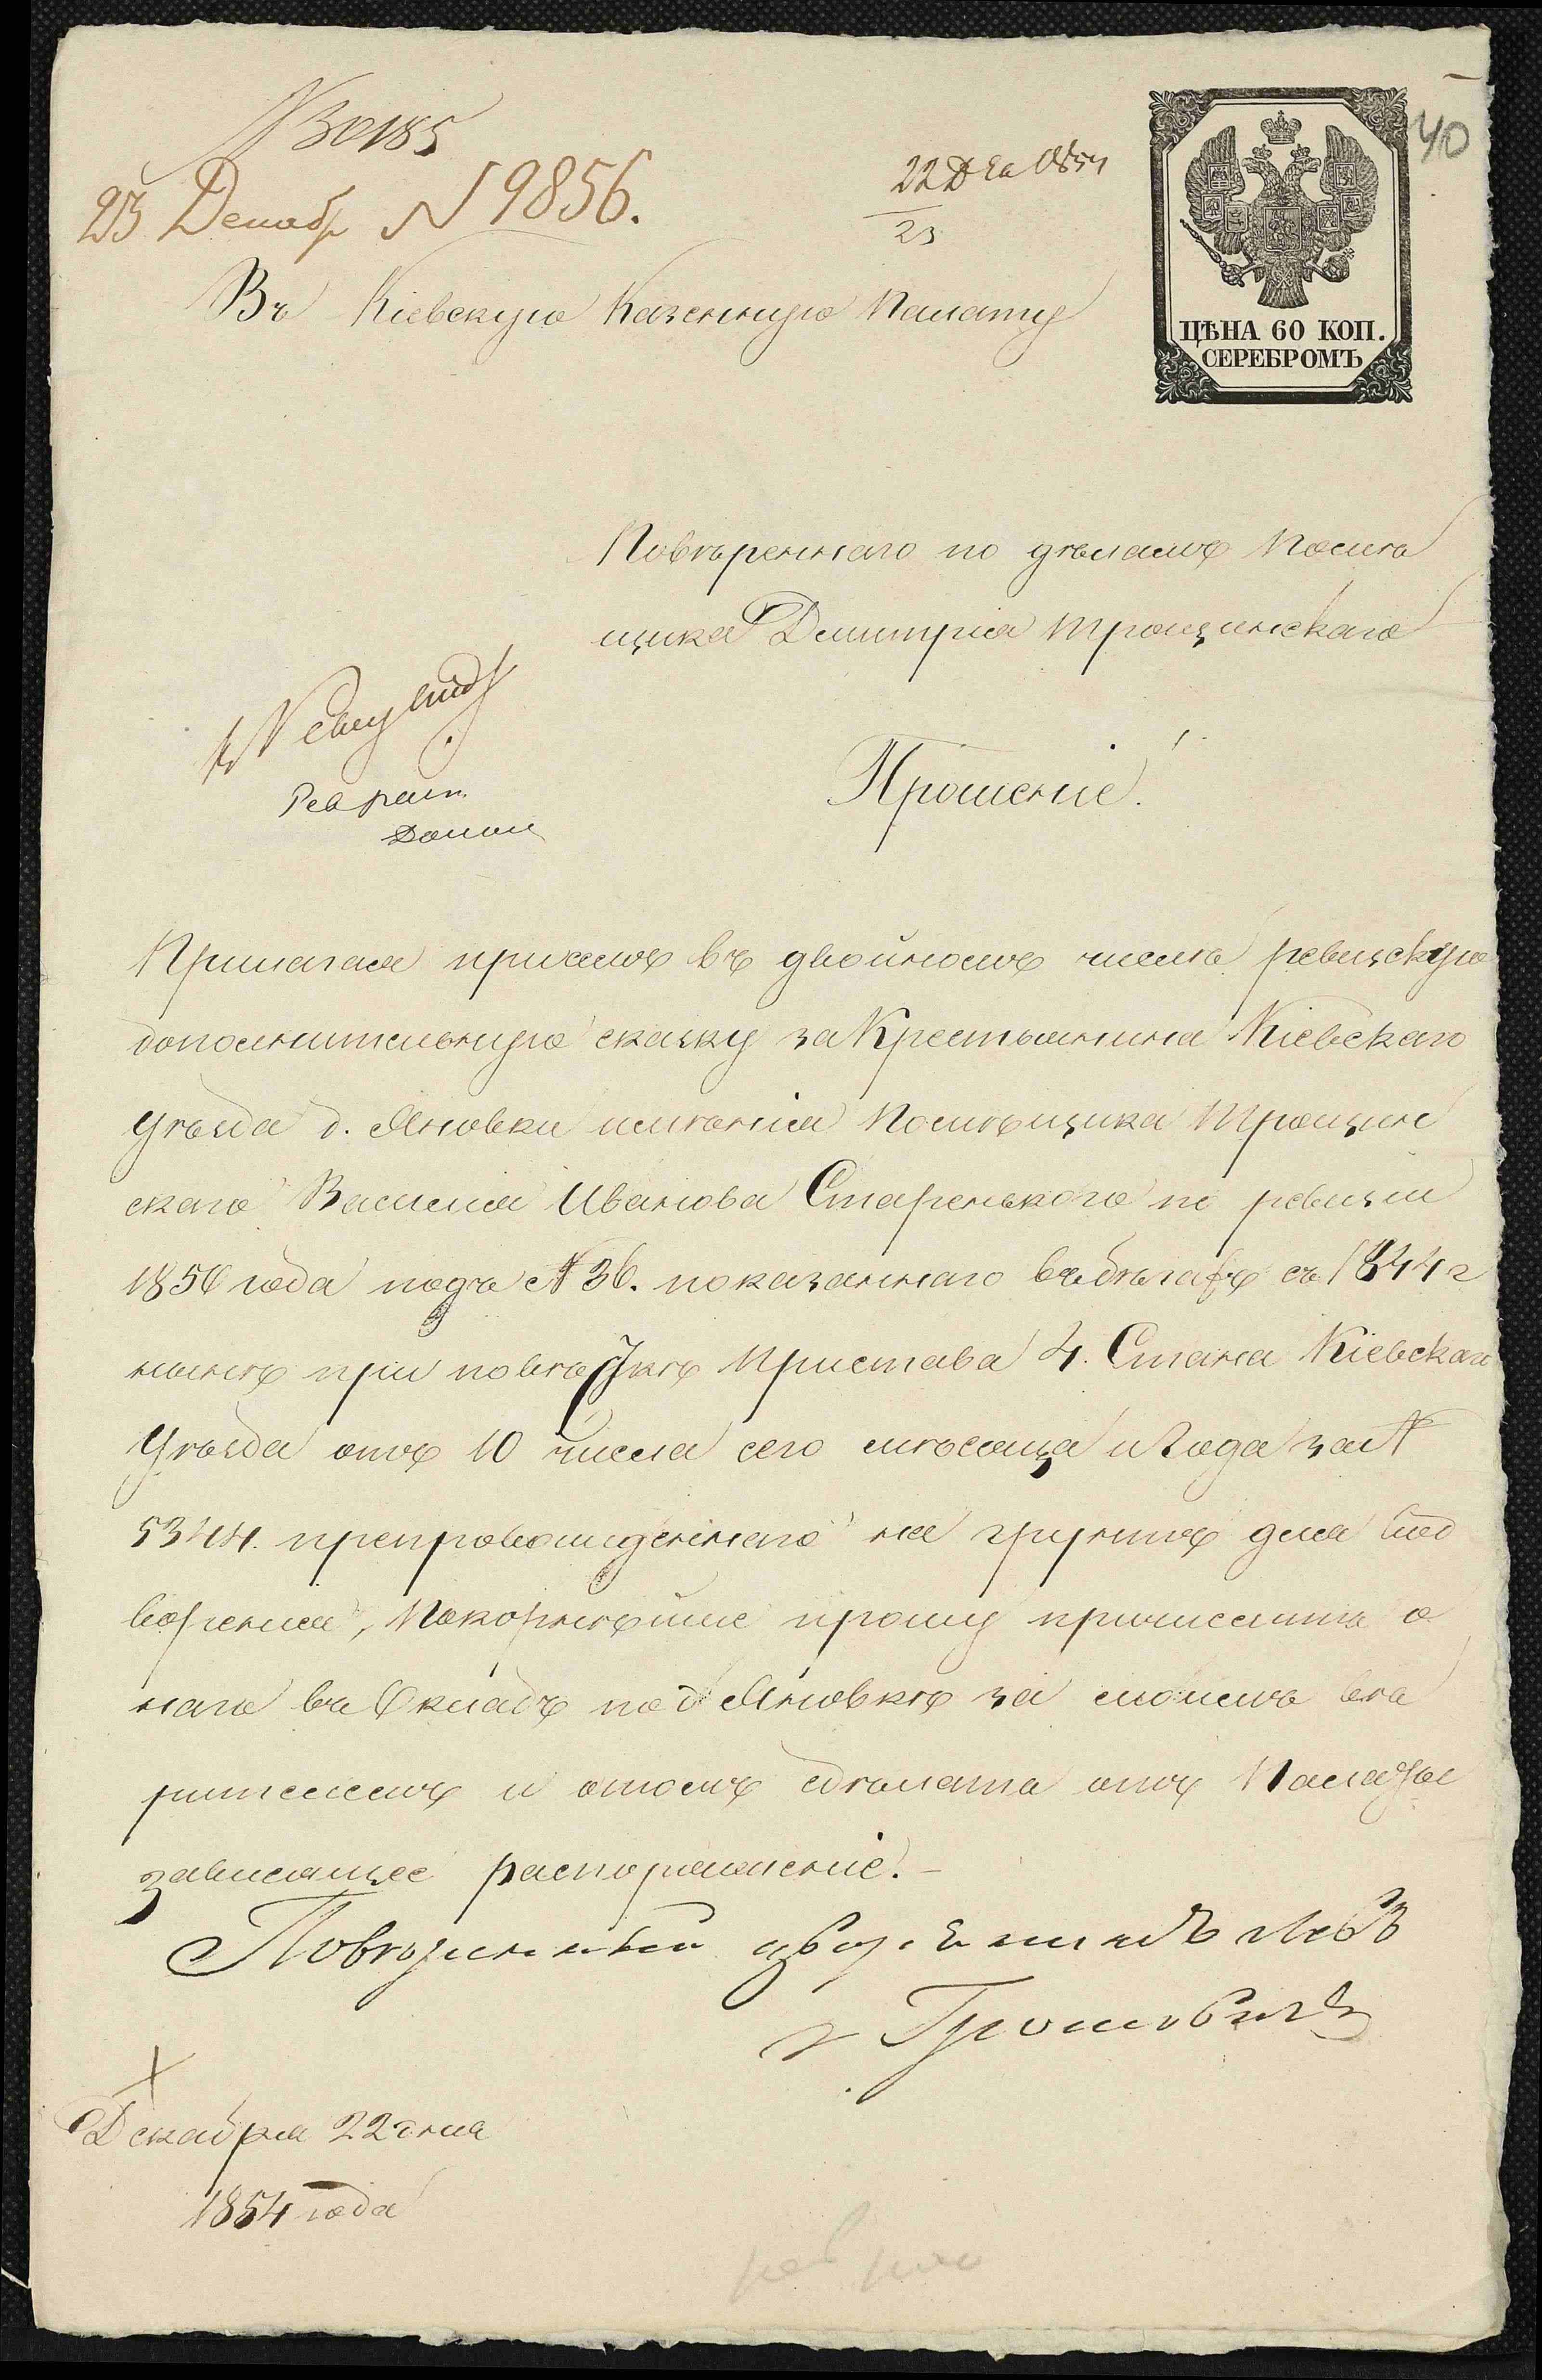 № 30185
23 Декабр № 9856.
22 Дека 1854
23
40
ЦѢНА 60 КОП.
СЕРЕБРОМЪ
Въ Кіевскую Казенную Палату
Повѣреннаго по дѣламъ Помѣ
щика Дмитрія Трощинскаго
Рев
Прошеніе.
Прилагая присемъ въ двойномъ числѣ ревизскую
дополнительную сказку за Крестьянина Кіевскаго
Уѣзда д. Яновки имѣнія Помѣщика Трощин
скаго Василія Иванова Старенького по ревизіи
1850 года подъ № 36. показаннаго въ бѣгахъ съ 1844 г
нынѣ при повѣсткѣ Пристава 4. Стана Кіевскаго
Уѣзда отъ 10 числа сего мѣсяца и Года за №
5344. препровожденнаго на грунтъ для вод
воренія, Покорнѣйше прошу причислить о
наго въ Окладъ по д Яновкѣ за моимъ вѣ
рителемъ и отомъ сдѣлать отъ Палаты
зависящее распоряженіе.-
Повѣренный дворянинъ Левъ
Громовичъ
Декабря 22 дня
1854 года